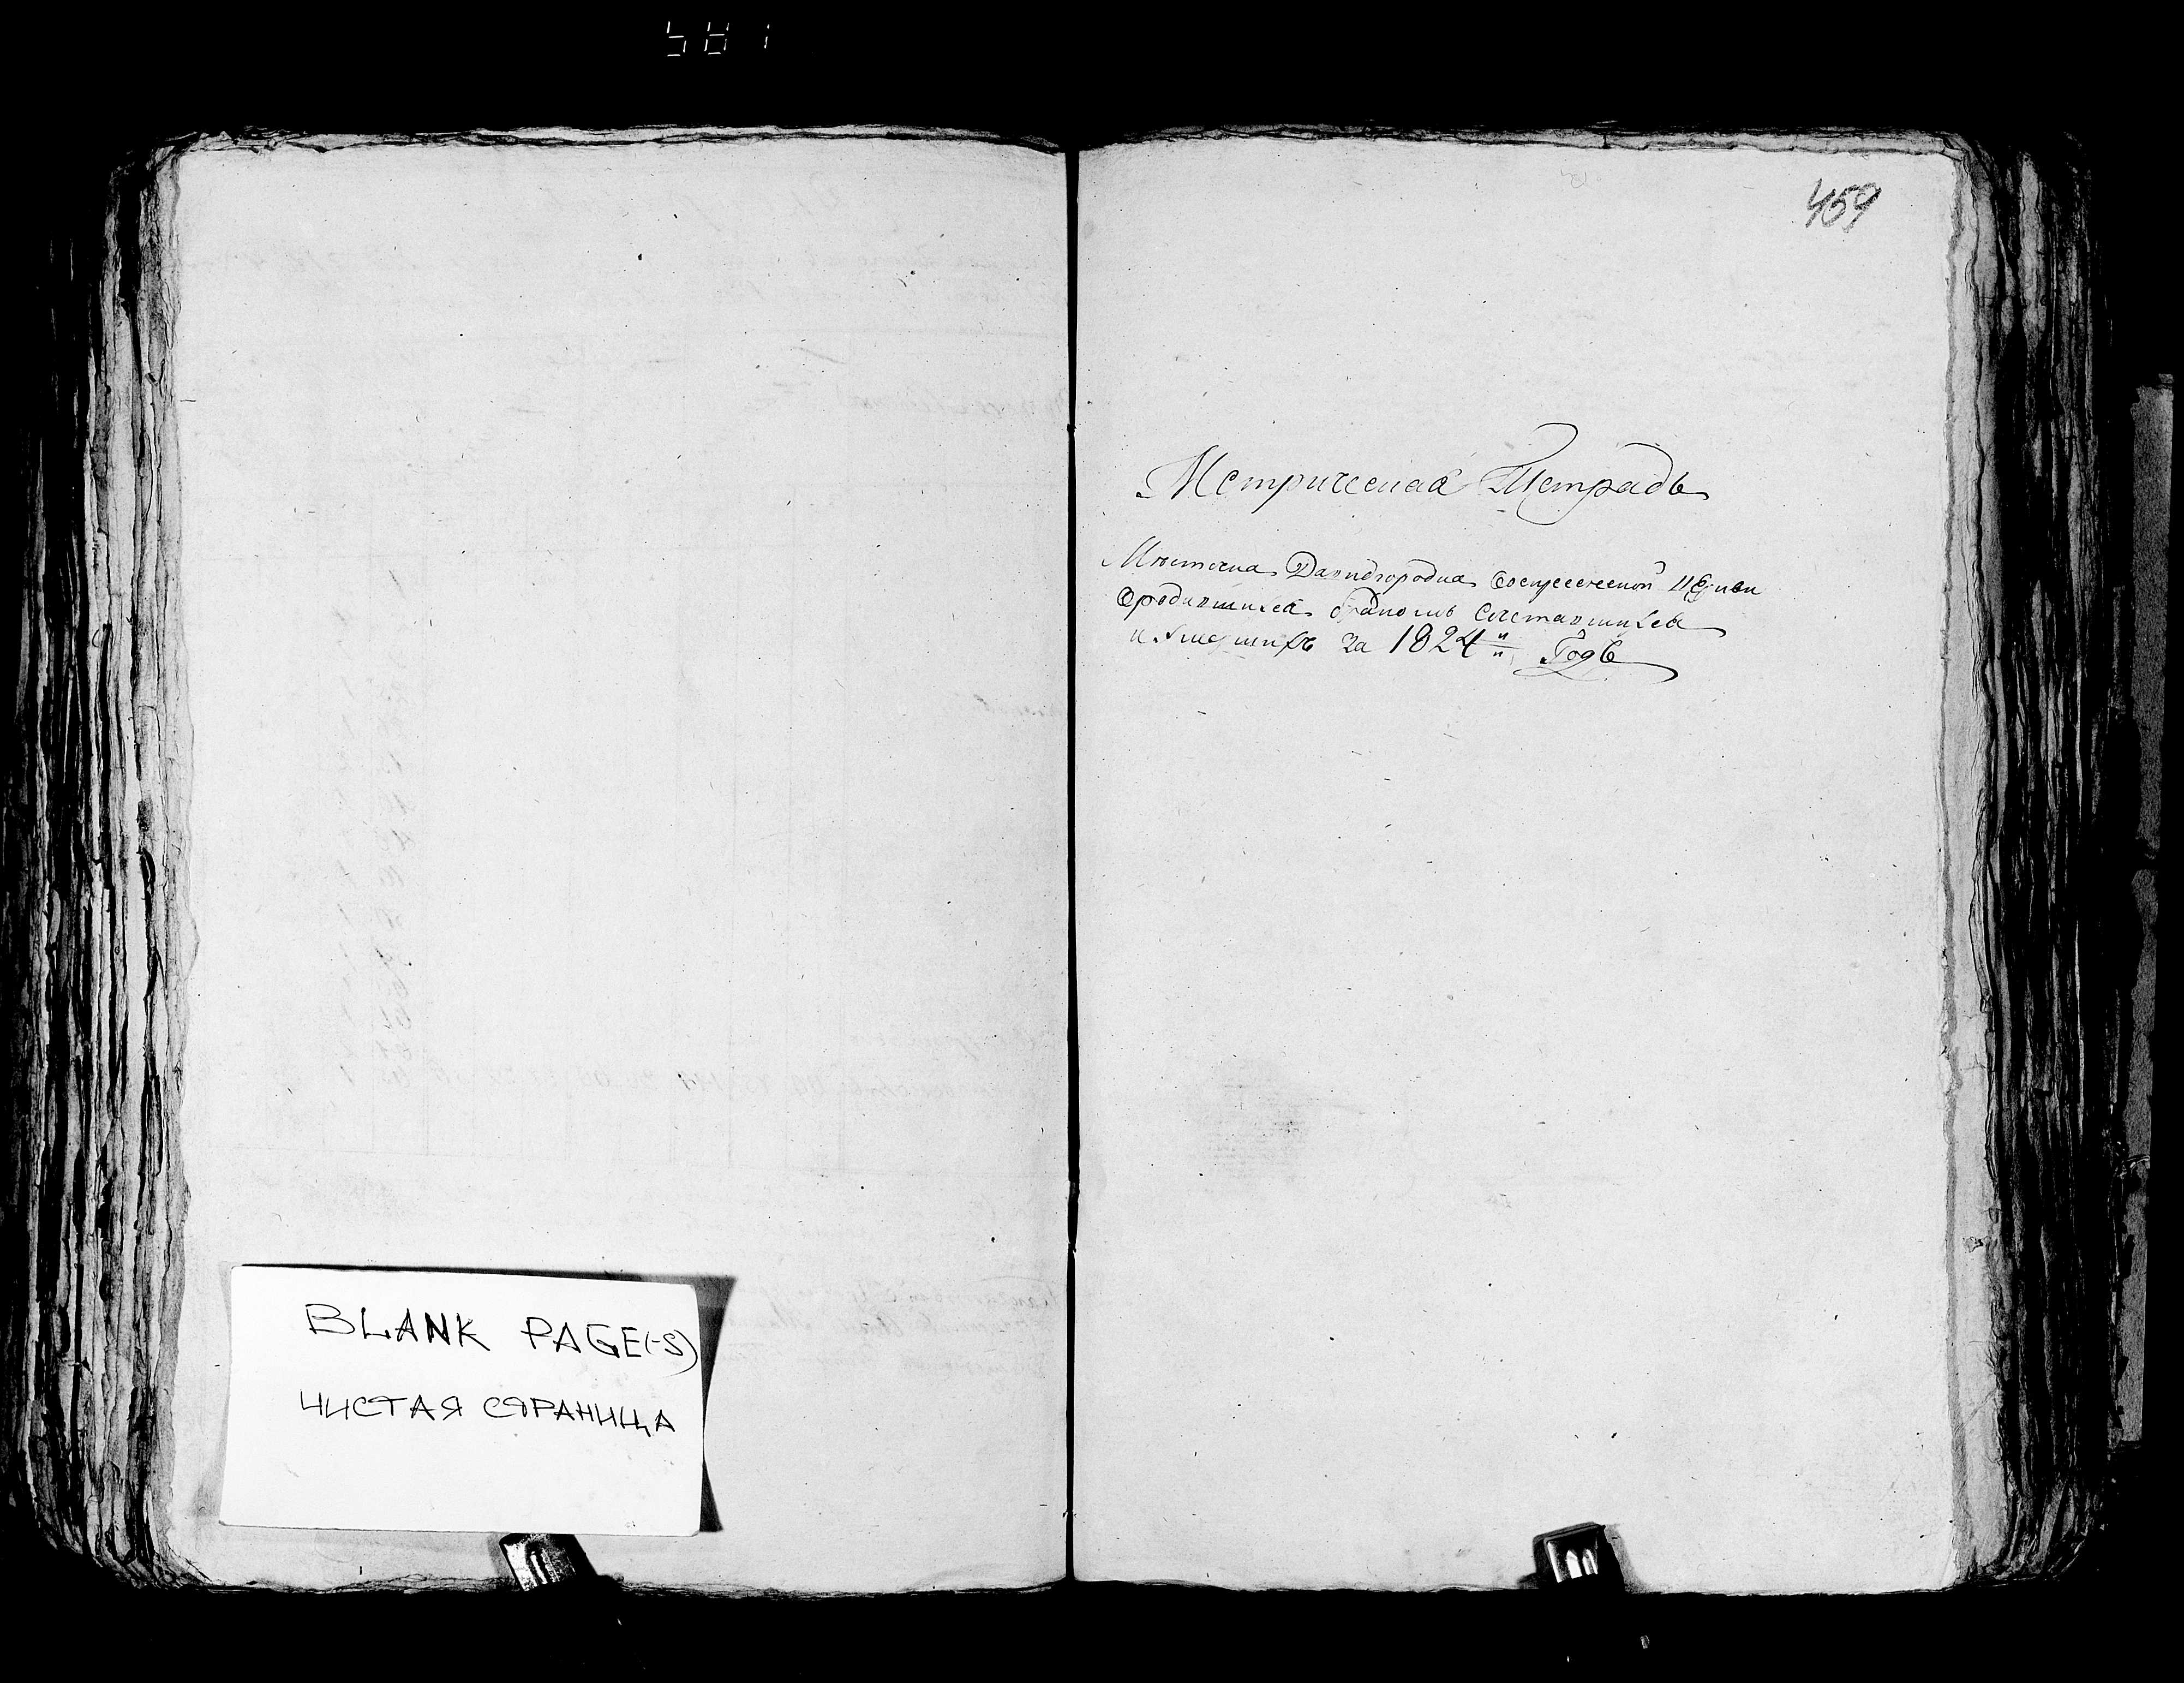 BLANK PAGE(-S)
ЧИСТАЯ СТРАНИЦА
459
Метрическая Тетрадь
Мѣстечка Давидгородка Воскресенской Церкви
Ородившихся бракомъ Сочетавшихся
и Умершихъ За 1824й Годъ